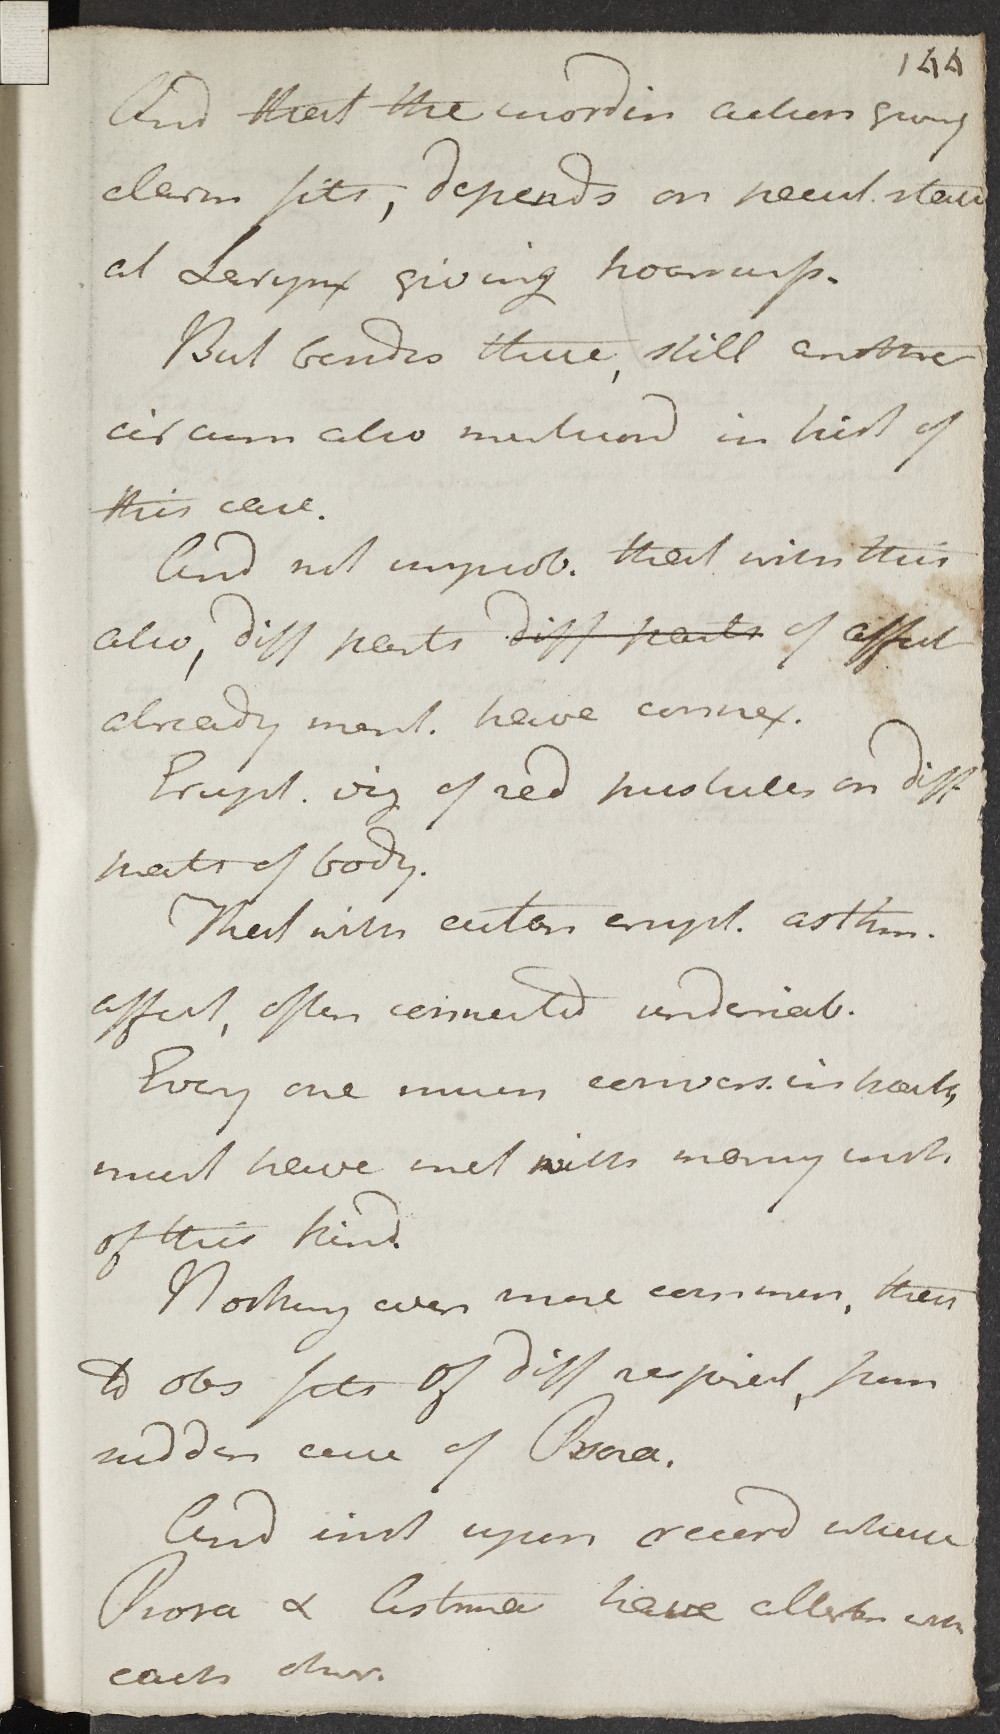 144
And that the inordin action giving
alarm fits, depends on pecul. state
at Larynx giving hoarsness.
But besides these, still another
circum also mentiond in hist of
this case.
And not improb. that with this
also, diff parts diff parts of affect
already ment. have connex.
Erupt. viz of red pustules on diff
parts of body.
That with cutan erupt. asthm.
affect, often connected undeniab.
Every one much convers. in pract,
must have met with many inst.
of this kind.
Nothing even more common, than
to obs fits of diff respirat, from
sudden cure of Psora.
And inst upon record where
Psora & Astma have altern with
each other.